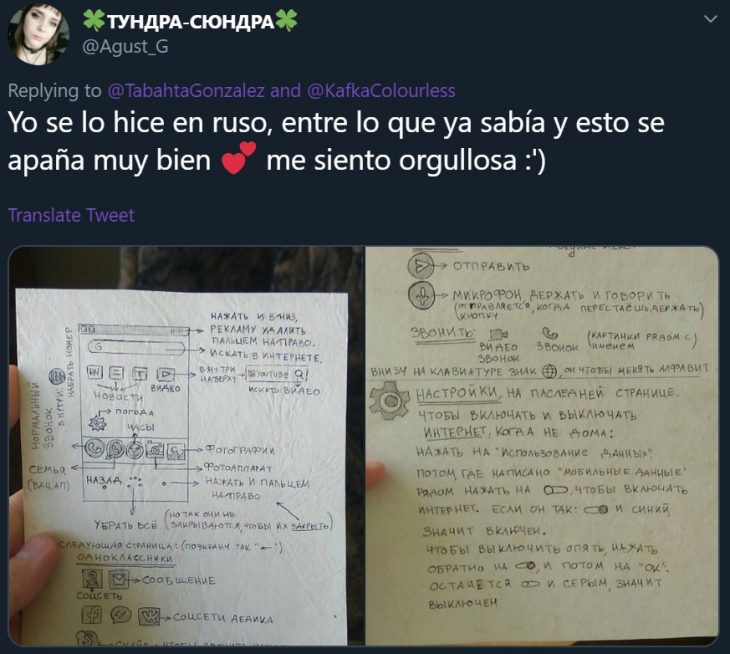 🍀ТУНДРА-СЮНДРА🍀
@Agust_G
Replying to @TabahtaGonzalez and @KafkaColourless
Yo se lo hice en ruso, entre lo que ya sabía y esto se
apaña muy bien 💕 me siento orgullosa :')
Translate Tweet
НАЖАТЬ И ВНИЗ,
РЕКЛАМУ УДАЛИТЬ
ПАЛЬЦЕМ НАПРАВО.
ИСКАТЬ В ИНТЕРНЕТЕ,
G
НОРМАЛЬНЫЙ
ЗВОНОК
ВНУТРИ
НАБРАТЬ НОМЕР
НОВОСТИ
ВИДЕО
ВНУТРИ
НАВЕРХУ
YOUTUBE
ИСКАТЬ ВИДЕО
ПОГОДА
ЧАСЫ
ФОТОГРАФИИ
ФОТОАППАРАТ
СЕМЬЯ
(ВАЦАП)
НАЗАД
НАЖАТЬ И ПАЛЬЦЕМ
НАПРАВО
УБРАТЬ ВСЁ
(НО ТАК ОНИ НЕ
ЗАКРЫВАЮТСЯ, ЧТОБЫ ИХ ЗАКРЫТЬ)
СЛЕДУЮЩАЯ СТРАНИЦА: (ПО ЭКРАНУ ТАК "←")
ОДНОКЛАССНИКИ
СООБЩЕНИЕ
СОЦСЕТЬ
СОЦСЕТИ
ОТПРАВИТЬ
МИКРОФОН, ДЕРЖАТЬ И ГОВОРИТЬ
(ОТПРАВЛЯЕТСЯ, КОГДА ПЕРЕСТАЁШЬ ДЕРЖАТЬ)
КНОПКУ
ЗВОНИТЬ:
ВИДЕО
ЗВОНОК
ЗВОНОК
(КАРТИНКИ РЯДОМ С)
ИМЕНЕМ
ВНИЗУ НА КЛАВИАТУРЕ ЗНАК , ОН ЧТОБЫ МЕНЯТЬ АЛФАВИТ
НАСТРОЙКИ, НА ПАСЛЕДНЕЙ СТРАНИЦЕ.
ЧТОБЫ ВКЛЮЧАТЬ И ВЫКЛЮЧАТЬ
ИНТЕРНЕТ, КОГДА НЕ ДОМА:
НАЖАТЬ НА "ИСПОЛЬЗОВАНИЕ ДАННЫХ".
ПОТОМ, ГДЕ НАПИСАНО "МОБИЛЬНЫЕ ДАННЫЕ"
РЯДОМ НАЖАТЬ НА , ЧТОБЫ ВКЛЮЧАТЬ
ИНТЕРНЕТ. ЕСЛИ ОН ТАК: И СИНИЙ,
ЗНАЧИТ ВКЛЮЧЕН.
ЧТОБЫ ВЫКЛЮЧИТЬ ОПЯТЬ, НАЖАТЬ
ОБРАТНО НА , И ПОТОМ НА "ОК".
ОСТАНЕТСЯ И СЕРЫМ, ЗНАЧИТ
ВЫКЛЮЧЕН